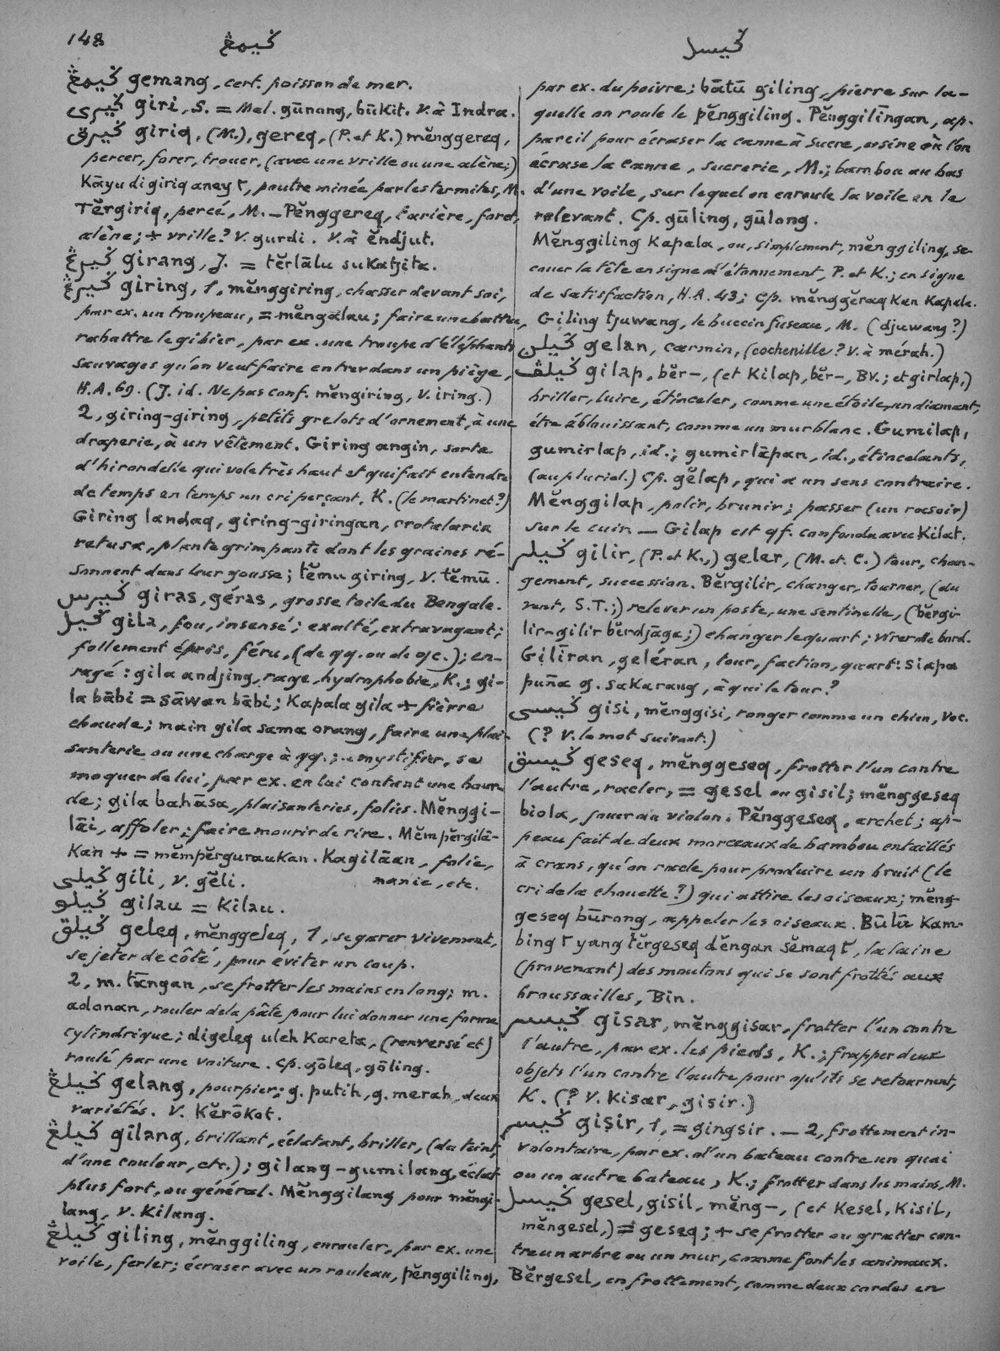 148
ڬيمڠ
ڬيسل
ڬيمڠ gemang, cert. poisson de mer.
ڬيري giri, S. = Mal. gūnong, būkit. V. à Indra.
ڬيرق giriq, (M.), gereq, (P. et K.) měnggereq,
percer, forer, trouer, (avec une vrille ou une alène;)
Kāyu digiriq aney २, poutre minée par les termites, M.
Těrgiriq, percé, M. — Pěnggereq, tarière, foret,
alène; + vrille? V. gurdi. V. à ěndjut.
ڬيرڠ girang, J. = těrlālu sukatjita.
ڬيرڠ giring, 1, měnggiring, chasser devant soi,
par ex. un troupeau, = měngālau; faire une battue,
rabattre le gibier, par ex. une troupe d'éléphants
sauvages qu'on veut faire entrer dans un piège,
H.A. 69. (J. id. Ne pas conf. měngiring, V. iring.)
2, giring-giring, petits grelots d'ornement, à une
draperie, à un vêtement. Giring angin, sorte
d'hirondelle qui vole très haut et qui fait entendre
de temps en temps un cri perçant, K. (le martinet?)
Giring landaq, giring-giringan, crotalaria
retusa, plante grimpante dont les graines ré-
sonnent dans leur gousse; těmu giring, V. těmū.
ڬيرس giras, géras, grosse toile du Bengale.
ڬيل gila, fou, insensé; exalté, extravagant;
follement épris, féru, (de qq. ou de qc.); en-
ragé: gila andjing, rage, hydrophobie, K.; gi-
la bābi = sāwan bābi; Kapala gila + fièvre
chaude; main gila sama orang, faire une plai-
santerie ou une charge à qq.; mystifier, se
moquer de lui, par ex. en lui contant une bour-
de; gila bahāsa, plaisanteries, folies. Měnggi-
lāi, affoler; faire mourir de rire. Měmpěrgilā-
Kan + = měmpěrguraukan. Kagilāan, folie,
manie, etc.
ڬيلي gili, V. gěli.
ڬيلو gilau = Kilau.
ڬيلق geleq, měnggeleq, 1, se garer vivement,
se jeter de côté, pour éviter un coup.
2, m. tāngan, se frotter les mains en long; m.
adonan, rouler de la pâte pour lui donner une forme
cylindrique; digeleq uleh Kareta, (renversé et)
roulé par une voiture. Cp. gōleq, gōling.
ڬيلڠ gelang, pourpier; g. putih, g. merah, deux
variétés. V. Kěrōkot.
ڬيلڠ gilang, brillant, éclatant, briller, (du teint,
d'une couleur, etc.); gilang-gumilang, éclat
plus fort, ou général. Měnggilang pour měngi-
lang, V. Kilang.
ڬيلڠ giling, měnggiling, enrouler, par ex. une
voile, ferler; écraser avec un rouleau, pěnggiling,
par ex. du poivre; bātū giling, pierre sur la-
quelle on roule le pěnggiling. Pěnggilīngan, ap-
pareil pour écraser la canne à sucre, usine où l'on
écrase la canne, sucrerie, M.; bambou au bas
d'une voile, sur lequel on enroule la voile en la
relevant. Cp. gūling, gūlong.
Měnggiling Kapala, ou, simplement, měnggiling, se-
couer la tête en signe d'étonnement, P. et K.; en signe
de satisfaction, H.A. 43; cp. měnggěraq Kan Kapala.
Giling tjuwang, le buccin fuseau, M. (djuwang?)
ڬيلن gelan, carmin, (cochenille? V. à mérah.)
ڬيلڤ gilap, běr-, (et Kilap, běr-, BV.; et girlap,)
briller, luire, étinceler, comme une étoile, un diamant,
être éblouissant, comme un mur blanc. Gumilap,
gumirlap, id.; gumirlāpan, id., étincelants,
(au pluriel.) Cp. gělap, qui a un sens contraire.
Měnggilap, polir, brunir; passer (un rasoir)
sur le cuir — Gilap est qf. confondu avec Kilat.
ڬيلر gilir, (P. et K.,) geler, (M. et C.) tour, chan-
gement, succession. Běrgilir, changer, tourner, (du
vent, S.T.;) relever un poste, une sentinelle, (běrgi-
lir-gilir běrdjāga;) changer le quart; virer de bord.
Gilīran, geléran, tour, faction, quart: siapa
puña g. sakarang, à qui le tour?
ڬيسي gisi, měnggisi, ronger comme un chien, Voc.
(? V. le mot suivant.)
ڬيسق geseq, měnggeseq, frotter l'un contre
l'autre, racler, = gesel ou gisil; měnggeseq
biola, jouer du violon. Pěnggeseq, archet; ap-
peau fait de deux morceaux de bambou entaillés
à crans, qu'on racle pour produire un bruit (le
cri de la chouette?) qui attire les oiseaux; měng-
geseq būrong, appeler les oiseaux. Būlū Kam-
bing २ yang těrgeseq děngan sěmaq २, la laine
(provenant) des moutons qui se sont frottés aux
broussailles, Bin.
ڬيسر gisar, měnggisar, frotter l'un contre
l'autre, par ex. les pieds, K.; frapper deux
objets l'un contre l'autre pour qu'ils se retournent,
K. (? V. Kisar, gisir.)
ڬيسر gisir, 1, = gingsir. — 2, frottement in-
volontaire, par ex. d'un bateau contre un quai
ou un autre bateau, K.; frotter dans les mains, M.
ڬيسل gesel, gisil, měng-, (et Kesel, Kisil,
měngesel,) = geseq; + se frotter ou gratter con-
tre un arbre ou un mur, comme font les animaux.
Běrgesel, en frottement, comme deux cordes en